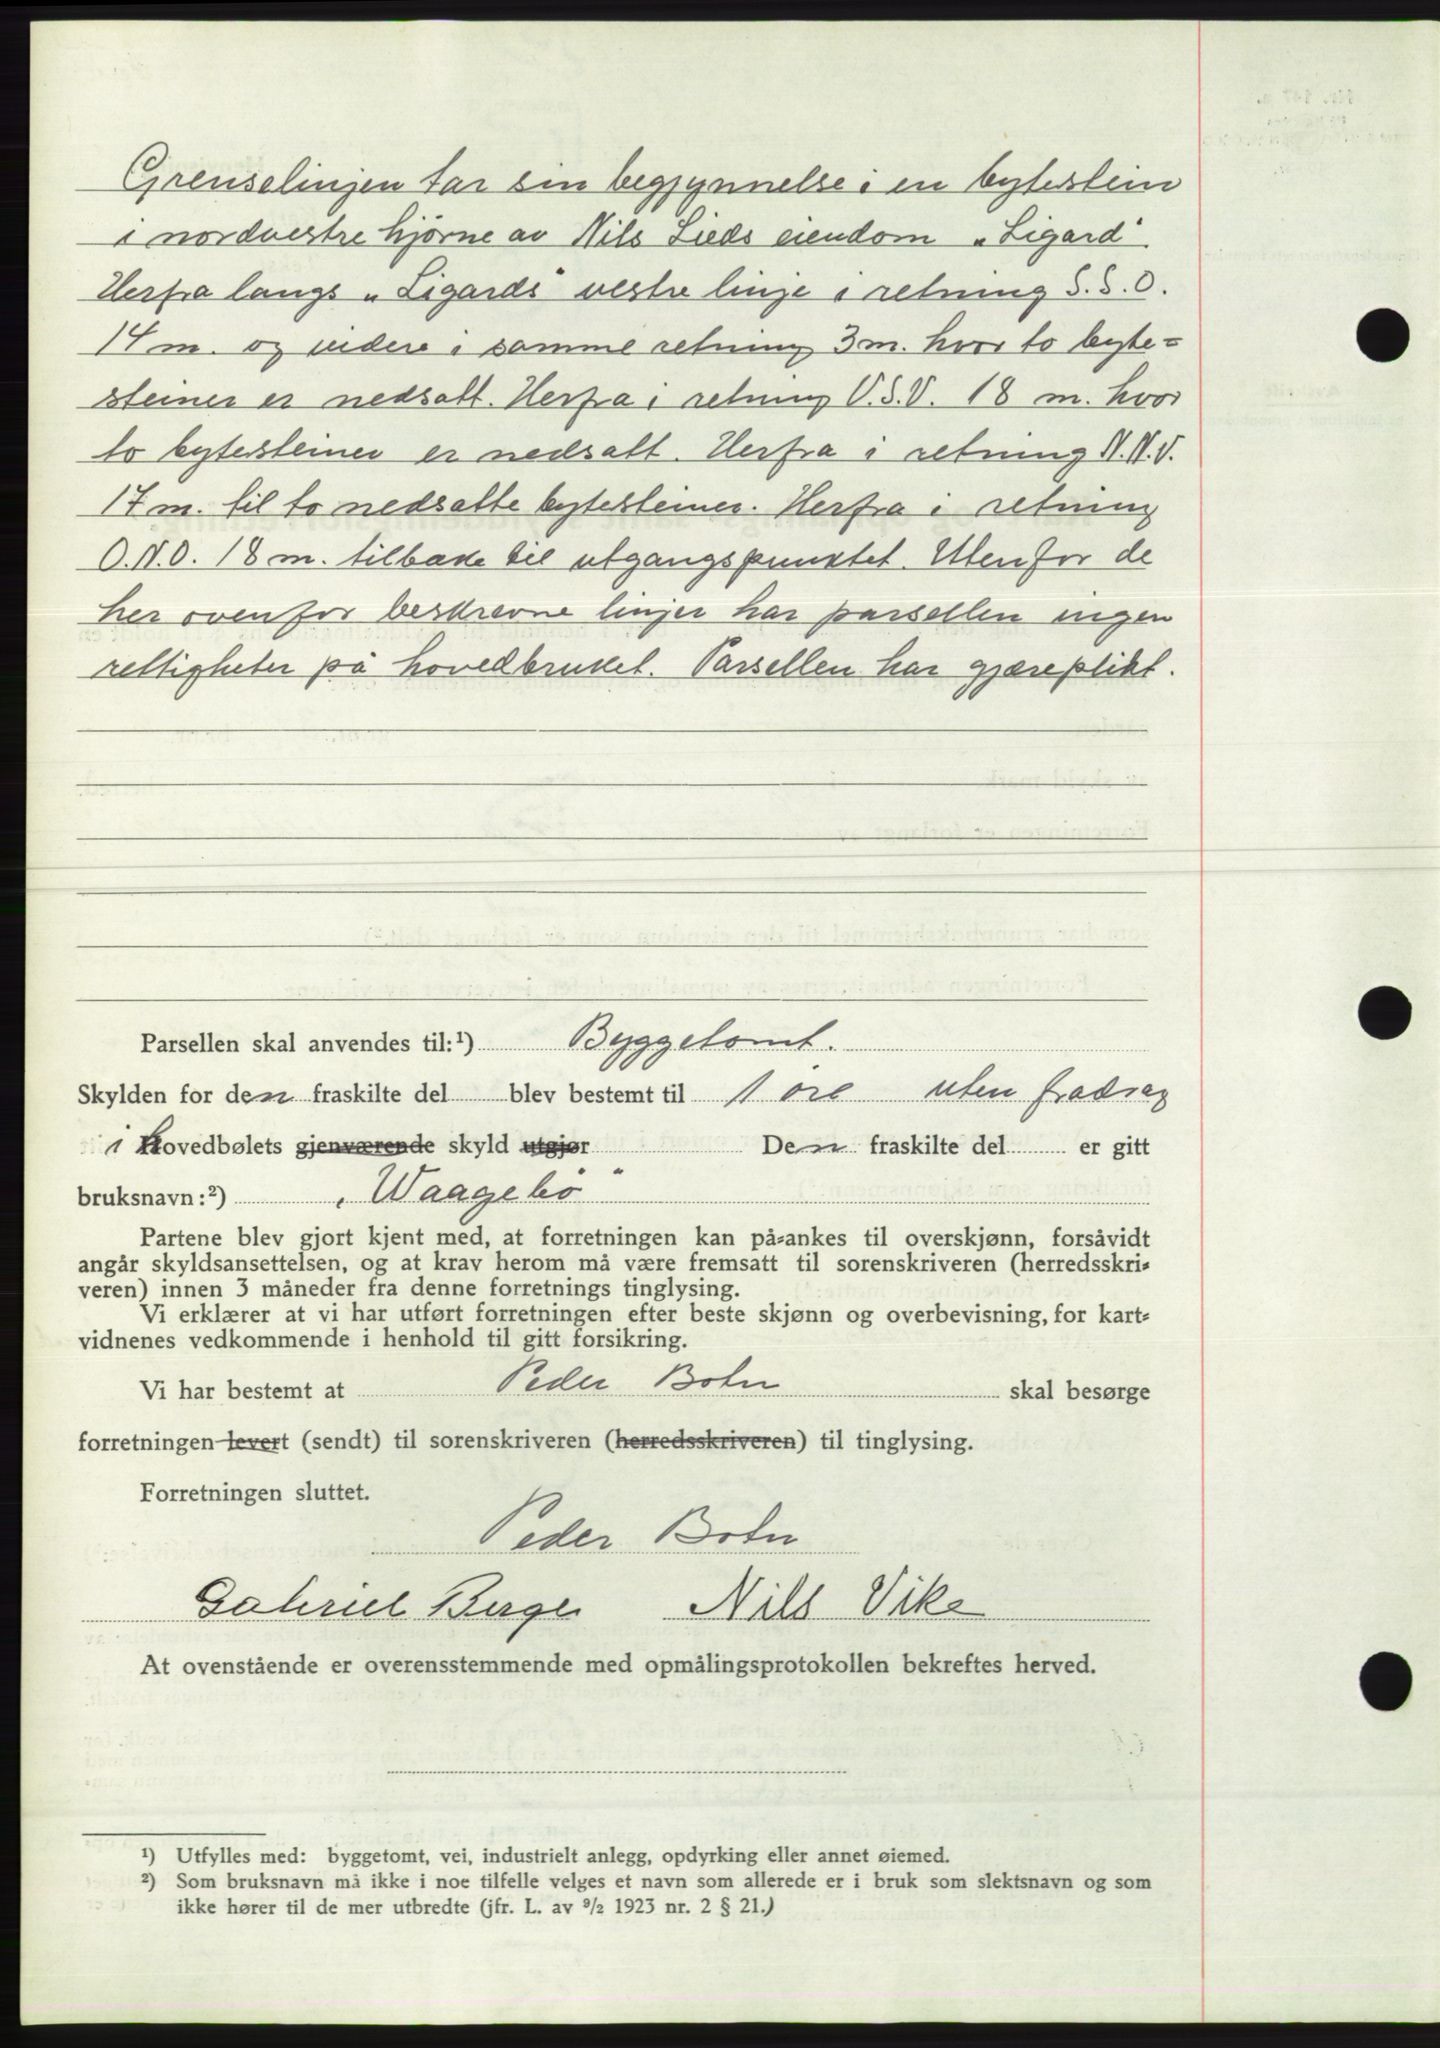 Grenselinjen tar sin begjynnelse i en bytestein
i nordvestre hjørne av Nils Lieds eiendom „Ligard".
Herfra langs „Ligards" vestre linje i retning S.S.O.
14 m. og videre i samme retning 3 m. hvor to byte=
steiner er nedsatt. Herfra i retning V.S.V. 18 m. hvor
to bytesteiner er nedsatt. Herfra i retning N.N.V.
17 m. til to nedsatte bytesteiner. Herfra i retning
O.N.O. 18 m. tilbake til utgangspunktet. Utenfor de
her ovenfor beskrevne linjer har parsellen ingen
rettigheter på hovedbruket. Parsellen har gjæreplikt.
Parsellen skal anvendes til:¹) Byggetomt.
Skylden for den fraskilte del blev bestemt til 1 øre uten fradrag
i hovedbølets gjenværende skyld utgjør Den fraskilte del er gitt
bruksnavn:²) „Waagebø"
Partene blev gjort kjent med, at forretningen kan på-ankes til overskjønn, forsåvidt
angår skyldsansettelsen, og at krav herom må være fremsatt til sorenskriveren (herredsskri-
veren) innen 3 måneder fra denne forretnings tinglysing.
Vi erklærer at vi har utført forretningen efter beste skjønn og overbevisning, for kart-
vidnenes vedkommende i henhold til gitt forsikring.
Vi har bestemt at Peder Botn skal besørge
forretningen levert (sendt) til sorenskriveren (herredsskriveren) til tinglysing.
Forretningen sluttet.
Peder Botn
Gabriel Berge Nils Vike
At ovenstående er overensstemmende med opmålingsprotokollen bekreftes herved.
¹) Utfylles med: byggetomt, vei, industrielt anlegg, opdyrking eller annet øiemed.
²) Som bruksnavn må ikke i noe tilfelle velges et navn som allerede er i bruk som slektsnavn og som
ikke hører til de mer utbredte (jfr. L. av ⁹/₂ 1923 nr. 2 § 21.)